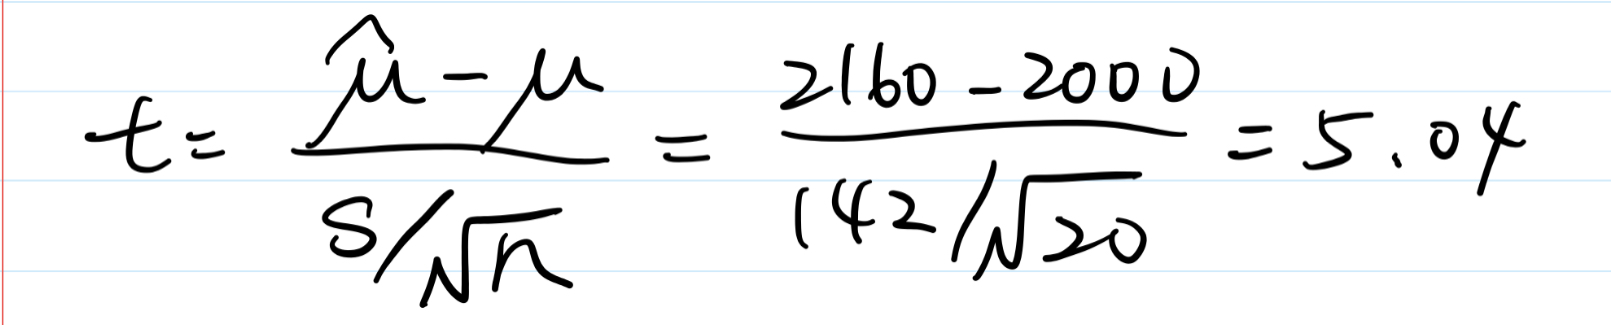 t = (μ̂ - μ) / (S/√n) = (2160 - 2000) / (142/√20) = 5.04